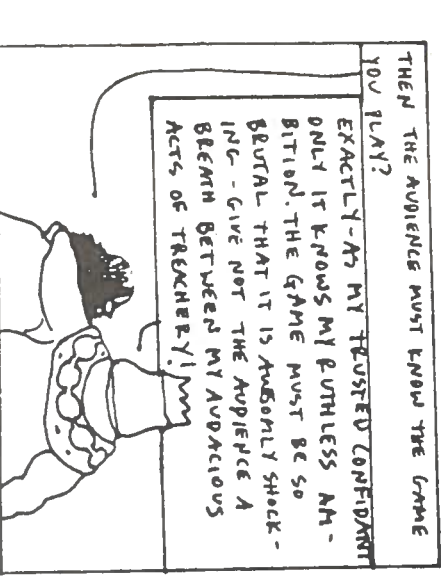 THEN THE AUDIENCE MUST KNOW THE GAME
YOU PLAY?
EXACTLY-AS MY TRUSTED CONFIDANT
ONLY IT KNOWS MY RUTHLESS AM-
BITION. THE GAME MUST BE SO
BRUTAL THAT IT IS AWESOMLY SHOCK-
ING - GIVE NOT THE AUDIENCE A
BREATH BETWEEN MY AUDACIOUS
ACTS OF TREACHERY!